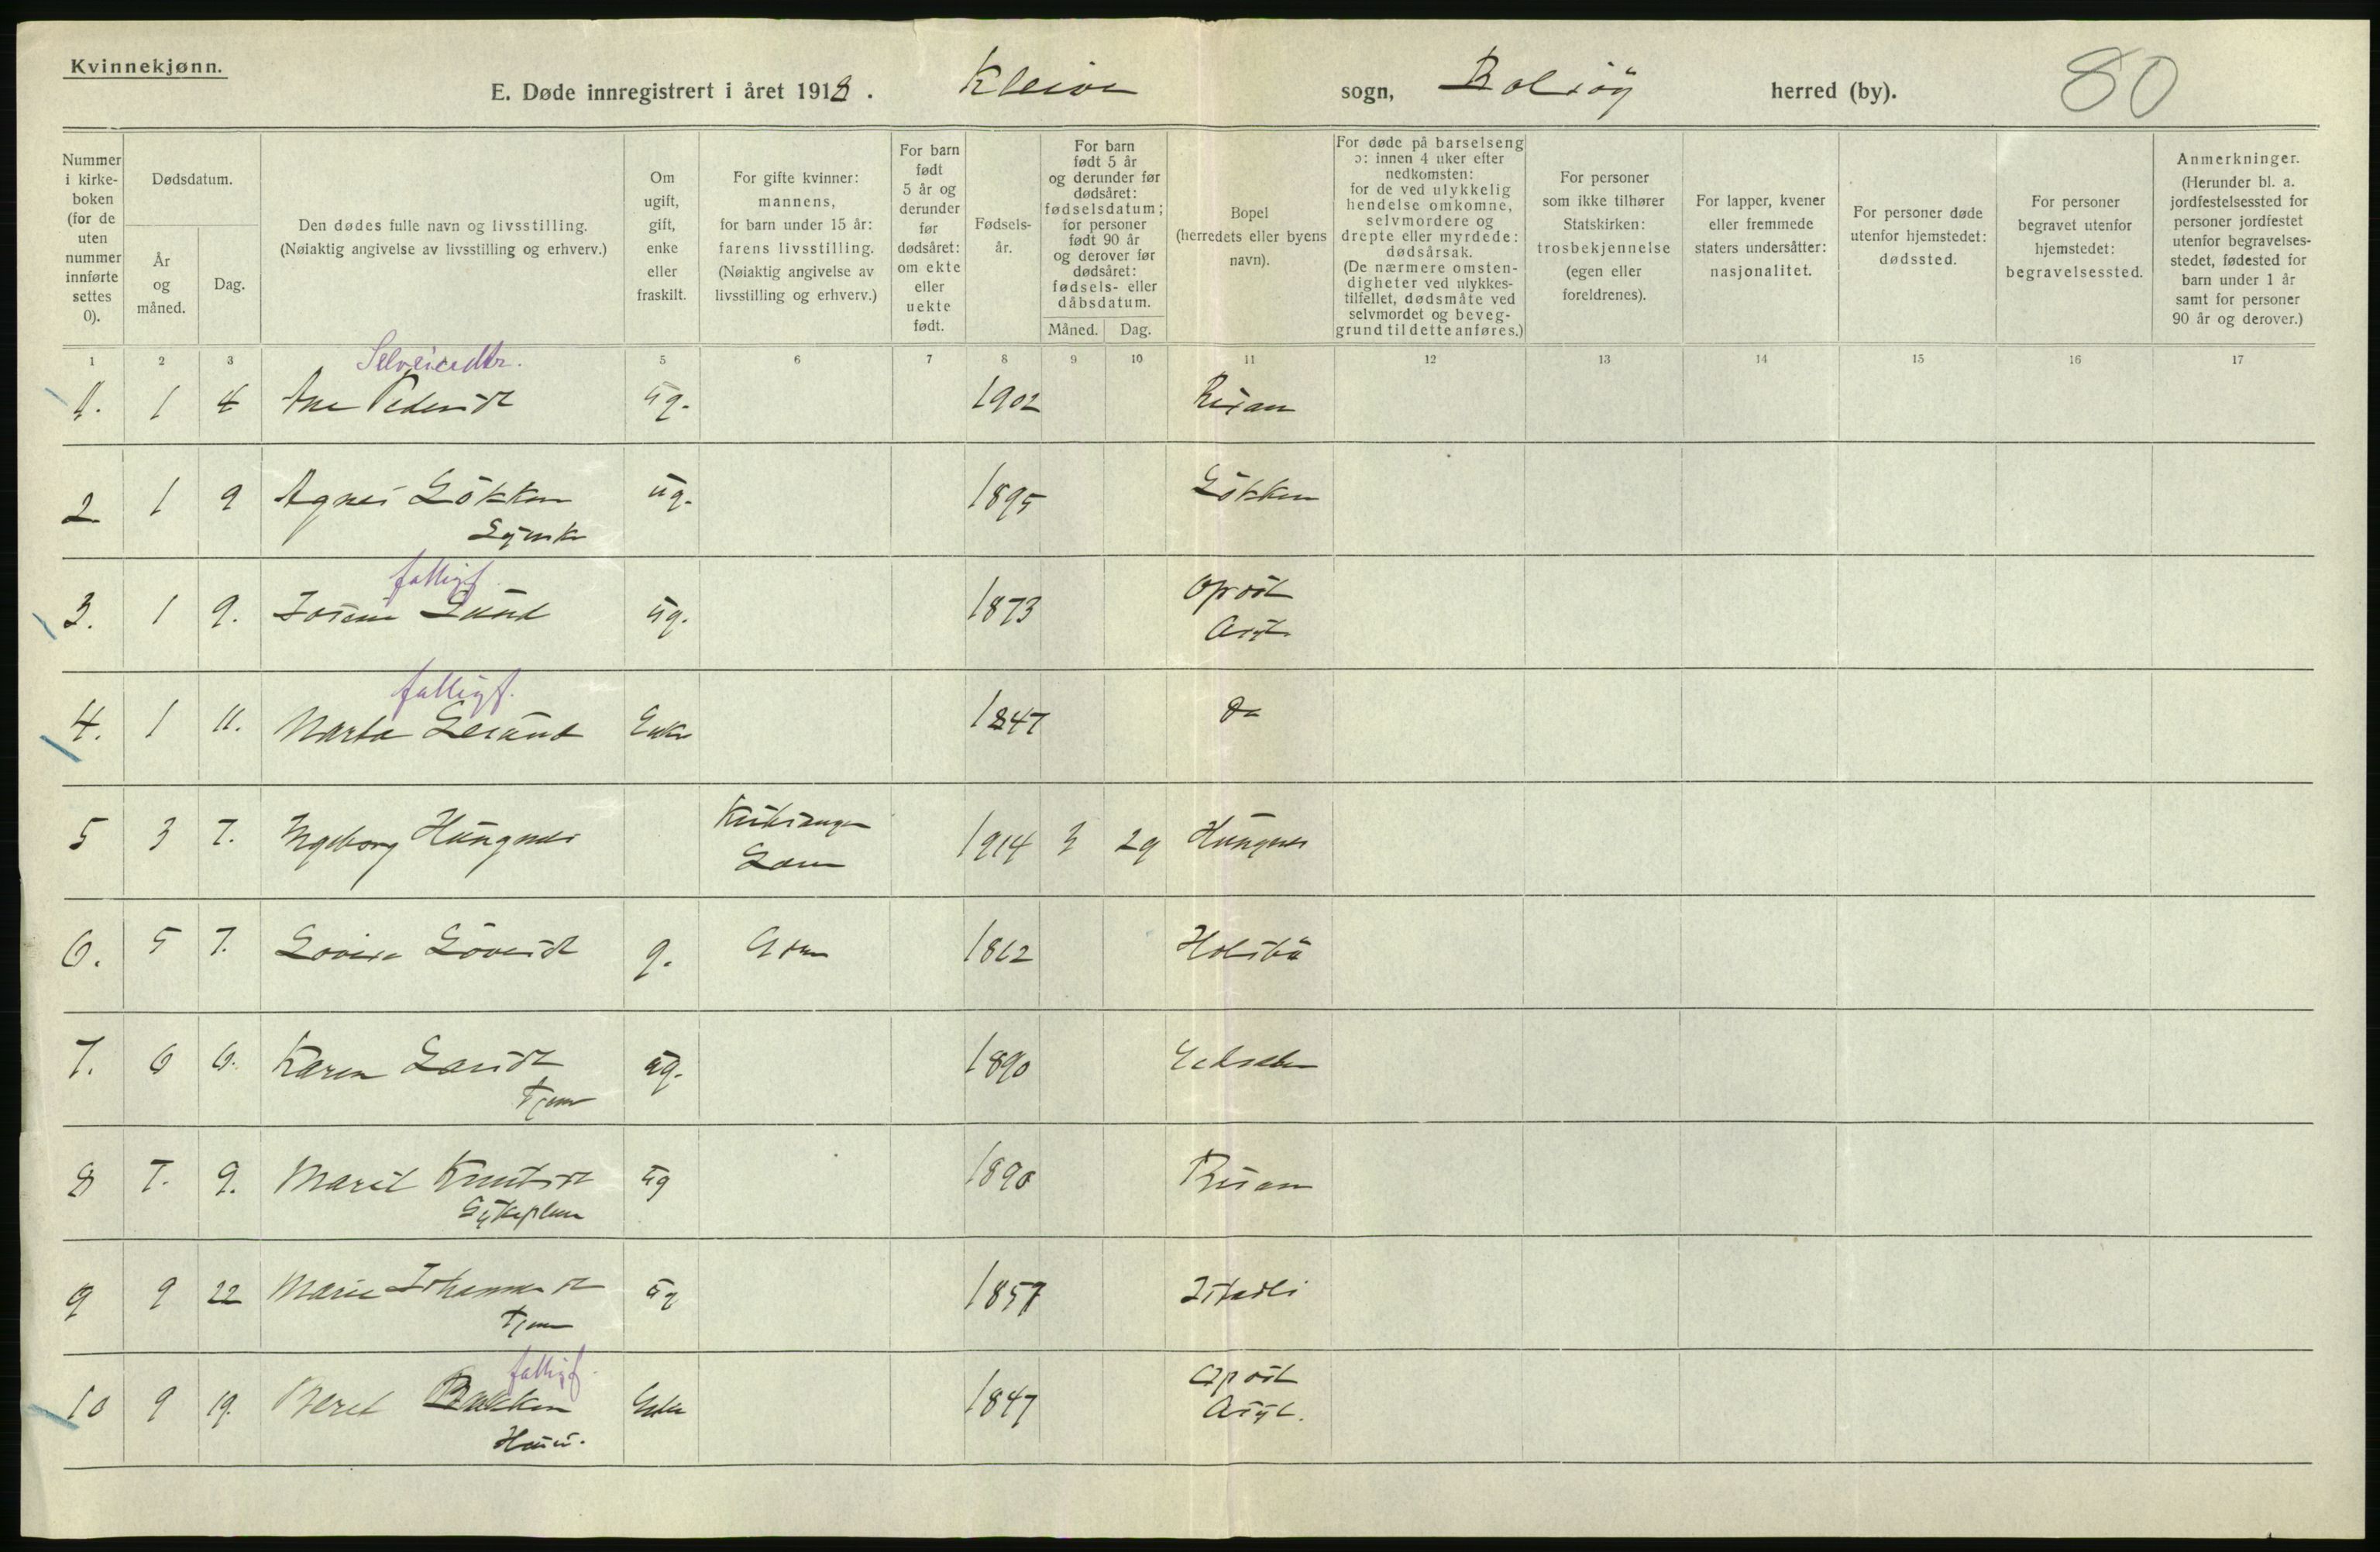 Kvinnekjønn.
E. Døde innregistrert i året 1918. Kleive sogn, Bolsöy herred (by). 80
Nummer i kirke-boken (for de uten nummer innførte settes 0).
Dødsdatum.
År og måned.
Dag.
Den dødes fulle navn og livsstilling.
(Nøiaktig angivelse av livsstilling og erhverv.)
Om ugift, gift, enke eller fraskilt.
For gifte kvinner: mannens, for barn under 15 år: farens livsstilling. (Nøiaktig angivelse av livsstilling og erhverv.)
For barn født 5 år og derunder før dødsåret: om ekte eller uekte født.
Fødsels-år.
For barn født 5 år og derunder før dødsåret: fødselsdatum; for personer født 90 år og derover før dødsåret: fødsels- eller dåbsdatum.
Måned. Dag.
Bopel (herredets eller byens navn).
For døde på barselseng ɔ: innen 4 uker efter nedkomsten: for de ved ulykkelig hendelse omkomne, selvmordere og drepte eller myrdede: dødsårsak. (De nærmere omsten-digheter ved ulykkes-tilfellet, dødsmåte ved selvmordet og beveg-grund til dette anføres.)
For personer som ikke tilhører Statskirken: trosbekjennelse (egen eller foreldrenes).
For lapper, kvener eller fremmede staters undersåtter: nasjonalitet.
For personer døde utenfor hjemstedet: dødssted.
For personer begravet utenfor hjemstedet: begravelsessted.
Anmerkninger. (Herunder bl. a. jordfestelsessted for personer jordfestet utenfor begravelses-stedet, fødested for barn under 1 år samt for personer 90 år og derover.)
1 2 3 5 6 7 8 9 10 11 12 13 14 15 16 17
Selveierdtr.
1. 1 4 Ane Pedersdt ug. 1902
2 1 9 Agnes Lökken ug. 1895 Lökken
fattigf.
3. 1 9. Lund ug. 1873
Asyl
fattigf.
4. 1 11. Marta Enke 1847 Do
5 3 7. Ingeborg Hungnes 1914 3 29 Hungnes
6. 5 7. g. 1862
7. 6 6. Karen ug. 1890
Tjen
8 7. 9. Marit Knutsdt ug 1890
Sykeplem
9 9 22 Marie Johannesdt ug 1857
Tjen
fattigf.
10 9 19. Beret Bakken Enke 1847
Asyl.